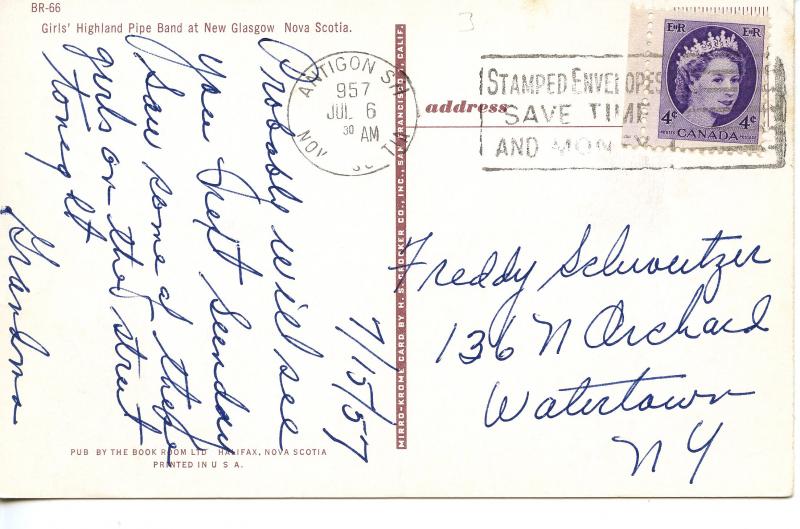 BR-66
Girls' Highland Pipe Band at New Glasgow Nova Scotia.
7/15/57
Probably will see
you next Sunday
Saw some of these
girls on the street
tonight
Grandma
PUB BY THE BOOK ROOM LTD HALIFAX, NOVA SCOTIA
PRINTED IN U S A.
MIRRO-KROME CARD BY H. S. CROCKER CO., INC., SAN FRANCISCO 1, CALIF.
ANTIGONISH
957
JUL 6
30 AM
NOV SCOTIA
address
STAMPED ENVELOPES
SAVE TIME
AND MONEY
E II R E II R
4¢ CANADA 4¢
Freddy Schweitzer
136 N Orchard
Watertown
NY
3